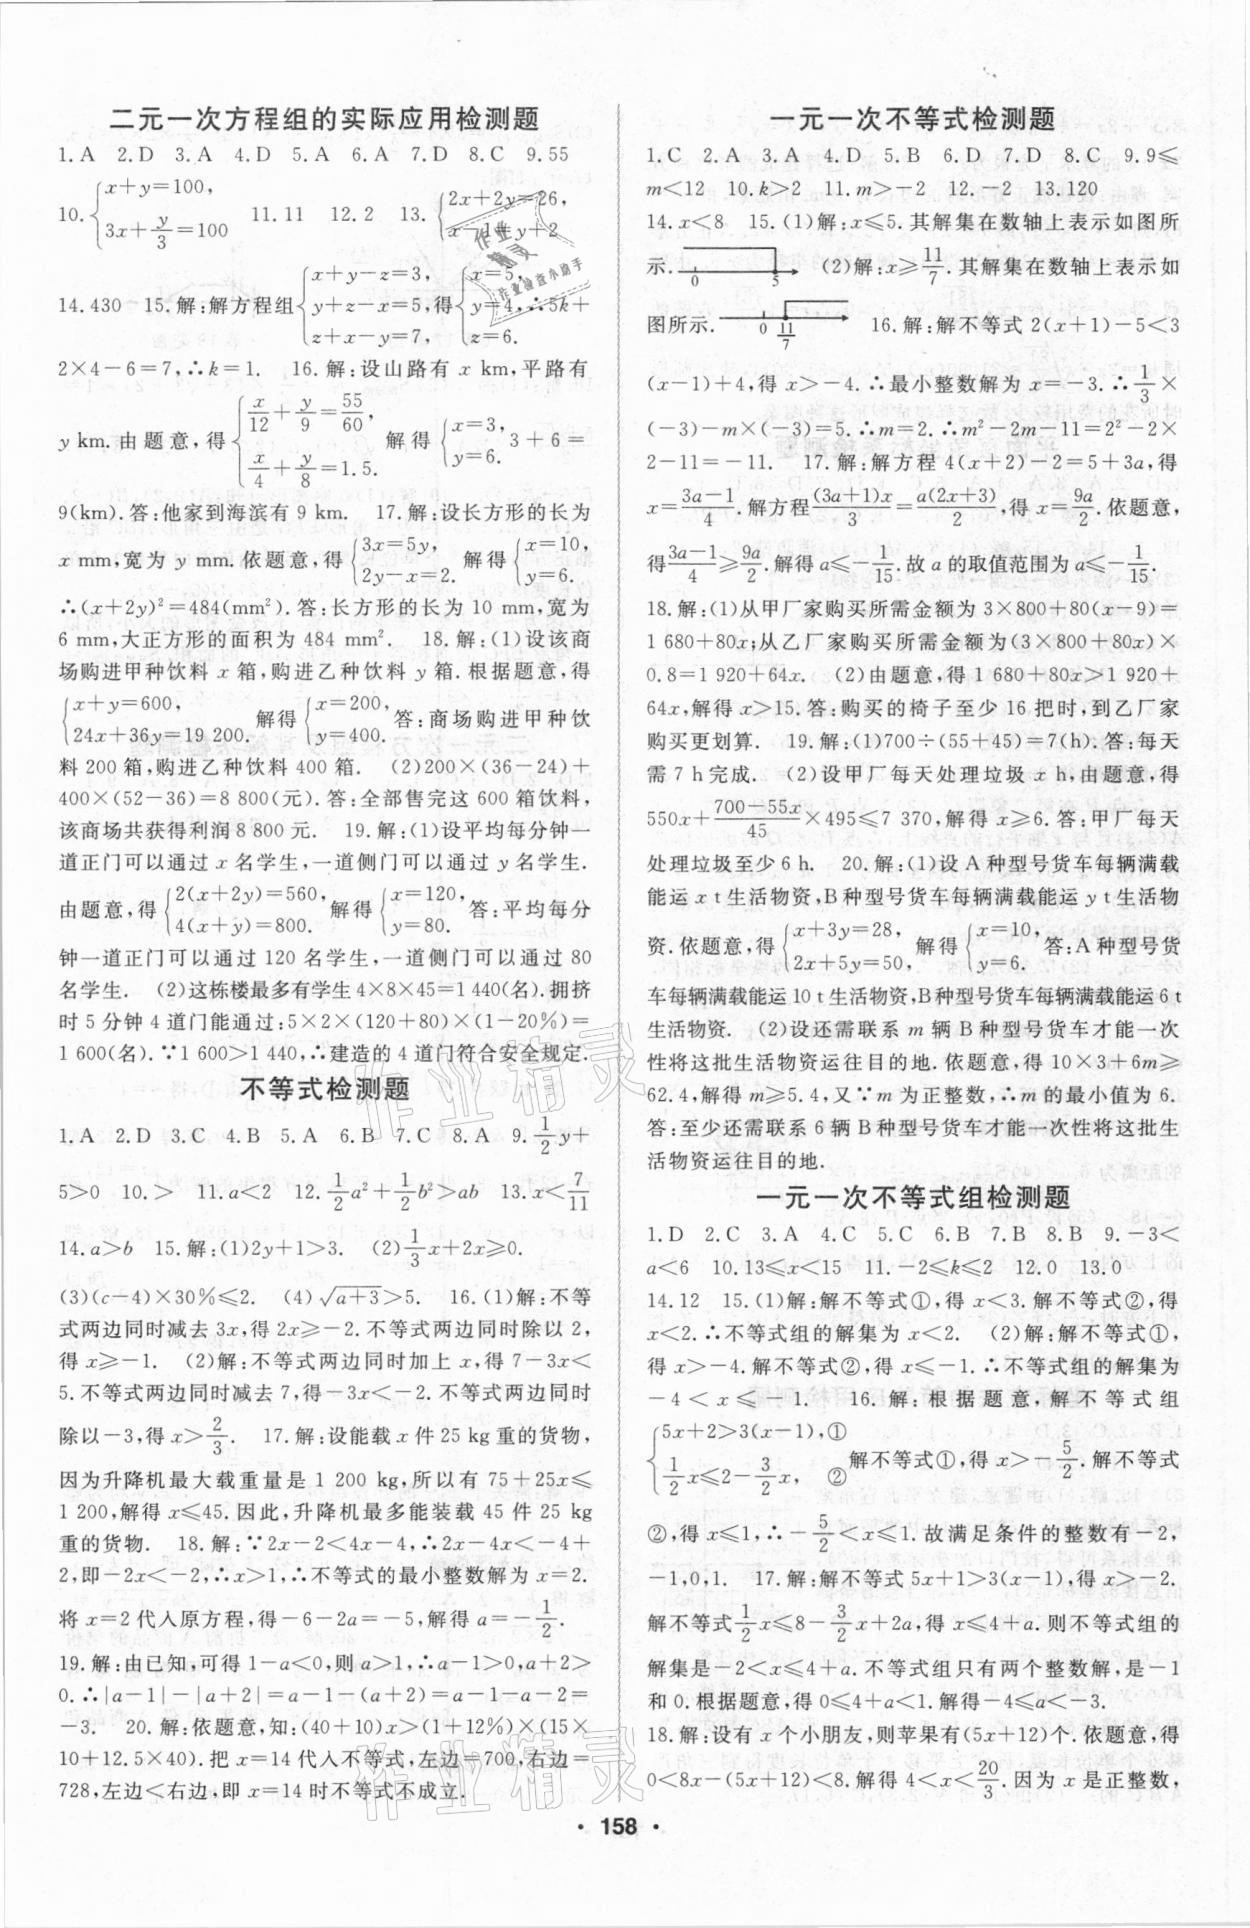 二元一次方程组的实际应用检测题
1.A 2.D 3.A 4.D 5.A 6.A 7.D 8.C 9.55
10.{x+y=100, 3x+y/3=100 11.11 12.2 13.{2x+2y=26, x-1=y+2
14.430 15.解:解方程组{x+y-z=3, y+z-x=5, z+x-y=7,得{x=5, y=4, z=6.∴5k+
2×4-6=7,∴k=1. 16.解:设山路有 x km,平路有
y km.由题意,得{x/12+y/9=55/60, x/4+y/8=1.5. 解得{x=3, y=6. 3+6=
9(km).答:他家到海滨有 9 km. 17.解:设长方形的长为
x mm,宽为 y mm.依题意,得{3x=5y, 2y-x=2. 解得{x=10, y=6.
∴(x+2y)²=484(mm²).答:长方形的长为 10 mm,宽为
6 mm,大正方形的面积为 484 mm². 18.解:(1)设该商
场购进甲种饮料 x 箱,购进乙种饮料 y 箱.根据题意,得
{x+y=600, 24x+36y=19 200. 解得{x=200, y=400. 答:商场购进甲种饮
料 200 箱,购进乙种饮料 400 箱. (2)200×(36-24)+
400×(52-36)=8 800(元).答:全部售完这 600 箱饮料,
该商场共获得利润 8 800 元. 19.解:(1)设平均每分钟一
道正门可以通过 x 名学生,一道侧门可以通过 y 名学生.
由题意,得{2(x+2y)=560, 4(x+y)=800. 解得{x=120, y=80. 答:平均每分
钟一道正门可以通过 120 名学生,一道侧门可以通过 80
名学生. (2)这栋楼最多有学生 4×8×45=1 440(名).拥挤
时 5 分钟 4 道门能通过:5×2×(120+80)×(1-20%)=
1 600(名).∵1 600>1 440,∴建造的 4 道门符合安全规定.
不等式检测题
1.A 2.D 3.C 4.B 5.A 6.B 7.C 8.A 9.1/2y+
5>0 10.> 11.a<2 12.1/2a²+1/2b²>ab 13.x<7/11
14.a>b 15.解:(1)2y+1>3. (2)1/3x+2x≥0.
(3)(c-4)×30%≤2. (4)√(a+3)>5. 16.(1)解:不等
式两边同时减去 3x,得 2x≥-2.不等式两边同时除以 2,
得 x≥-1. (2)解:不等式两边同时加上 x,得 7-3x<
5.不等式两边同时减去 7,得-3x<-2.不等式两边同时
除以-3,得 x>2/3. 17.解:设能载 x 件 25 kg 重的货物,
因为升降机最大载重量是 1 200 kg,所以有 75+25x≤
1 200,解得 x≤45.因此,升降机最多能装载 45 件 25 kg
重的货物. 18.解:∵2x-2<4x-4,∴2x-4x<-4+
2,即-2x<-2,∴x>1,∴不等式的最小整数解为 x=2.
将 x=2 代入原方程,得-6-2a=-5,解得 a=-1/2.
19.解:由已知,可得 1-a<0,则 a>1,∴a-1>0,a+2>
0.∴|a-1|-|a+2|=a-1-(a+2)=a-1-a-2=
-3. 20.解:依题意,知:(40+10)x>(1+12%)×(15×
10+12.5×40).把 x=14 代入不等式,左边=700,右边=
728,左边<右边,即 x=14 时不等式不成立.
一元一次不等式检测题
1.C 2.A 3.A 4.D 5.B 6.D 7.D 8.C 9.9≤
m<12 10.k>2 11.m>-2 12.-2 13.120
14.x<8 15.(1)解:x≤5.其解集在数轴上表示如图所
示. 0 5 (2)解:x≥11/7.其解集在数轴上表示如
图所示. 0 11/7 16.解:解不等式 2(x+1)-5<3
(x-1)+4,得 x>-4.∴最小整数解为 x=-3.∴1/3×
(-3)-m×(-3)=5.∴m=2.∴m²-2m-11=2²-2×
2-11=-11. 17.解:解方程 4(x+2)-2=5+3a,得
x=(3a-1)/4.解方程(3a+1)x/3=a(2x+3)/2,得 x=9a/2.依题意,
得(3a-1)/4≥9a/2.解得 a≤-1/15.故 a 的取值范围为 a≤-1/15.
18.解:(1)从甲厂家购买所需金额为 3×800+80(x-9)=
1 680+80x;从乙厂家购买所需金额为(3×800+80x)×
0.8=1 920+64x. (2)由题意,得 1 680+80x>1 920+
64x,解得 x>15.答:购买的椅子至少 16 把时,到乙厂家
购买更划算. 19.解:(1)700÷(55+45)=7(h).答:每天
需 7 h 完成. (2)设甲厂每天处理垃圾 x h,由题意,得
550x+(700-55x)/45×495≤7 370,解得 x≥6.答:甲厂每天
处理垃圾至少 6 h. 20.解:(1)设 A 种型号货车每辆满载
能运 x t 生活物资,B种型号货车每辆满载能运 y t 生活物
资.依题意,得{x+3y=28, 2x+5y=50, 解得{x=10, y=6. 答:A 种型号货
车每辆满载能运10 t生活物资,B种型号货车每辆满载能运6 t
生活物资. (2)设还需联系 m 辆 B 种型号货车才能一次
性将这批生活物资运往目的地.依题意,得 10×3+6m≥
62.4,解得 m≥5.4,又∵m 为正整数,∴m 的最小值为 6.
答:至少还需联系 6 辆 B 种型号货车才能一次性将这批生
活物资运往目的地.
一元一次不等式组检测题
1.D 2.C 3.A 4.C 5.C 6.B 7.B 8.B 9.-3<
a<6 10.13≤x<15 11.-2≤k≤2 12.0 13.0
14.12 15.(1)解:解不等式①,得 x<3.解不等式②,得
x<2.∴不等式组的解集为 x<2. (2)解:解不等式①,
得 x>-4.解不等式②,得 x≤-1.∴不等式组的解集为
-4<x≤-1. 16.解:根据题意,解不等式组
{5x+2>3(x-1),① 1/2x≤2-3/2x, ② 解不等式①,得 x>-5/2.解不等式
②,得 x≤1,∴-5/2<x≤1.故满足条件的整数有-2,
-1,0,1. 17.解:解不等式 5x+1>3(x-1),得 x>-2.
解不等式1/2x≤8-3/2x+2a,得 x≤4+a.则不等式组的
解集是-2<x≤4+a.不等式组只有两个整数解,是-1
和 0.根据题意,得 0≤4+a<1.解得-4≤a<-3.
18.解:设有 x 个小朋友,则苹果有(5x+12)个.依题意,得
0<8x-(5x+12)<8.解得 4<x<20/3.因为 x 是正整数,
• 158 •
作业精灵
作业检查小助手
作业精灵
作业精灵